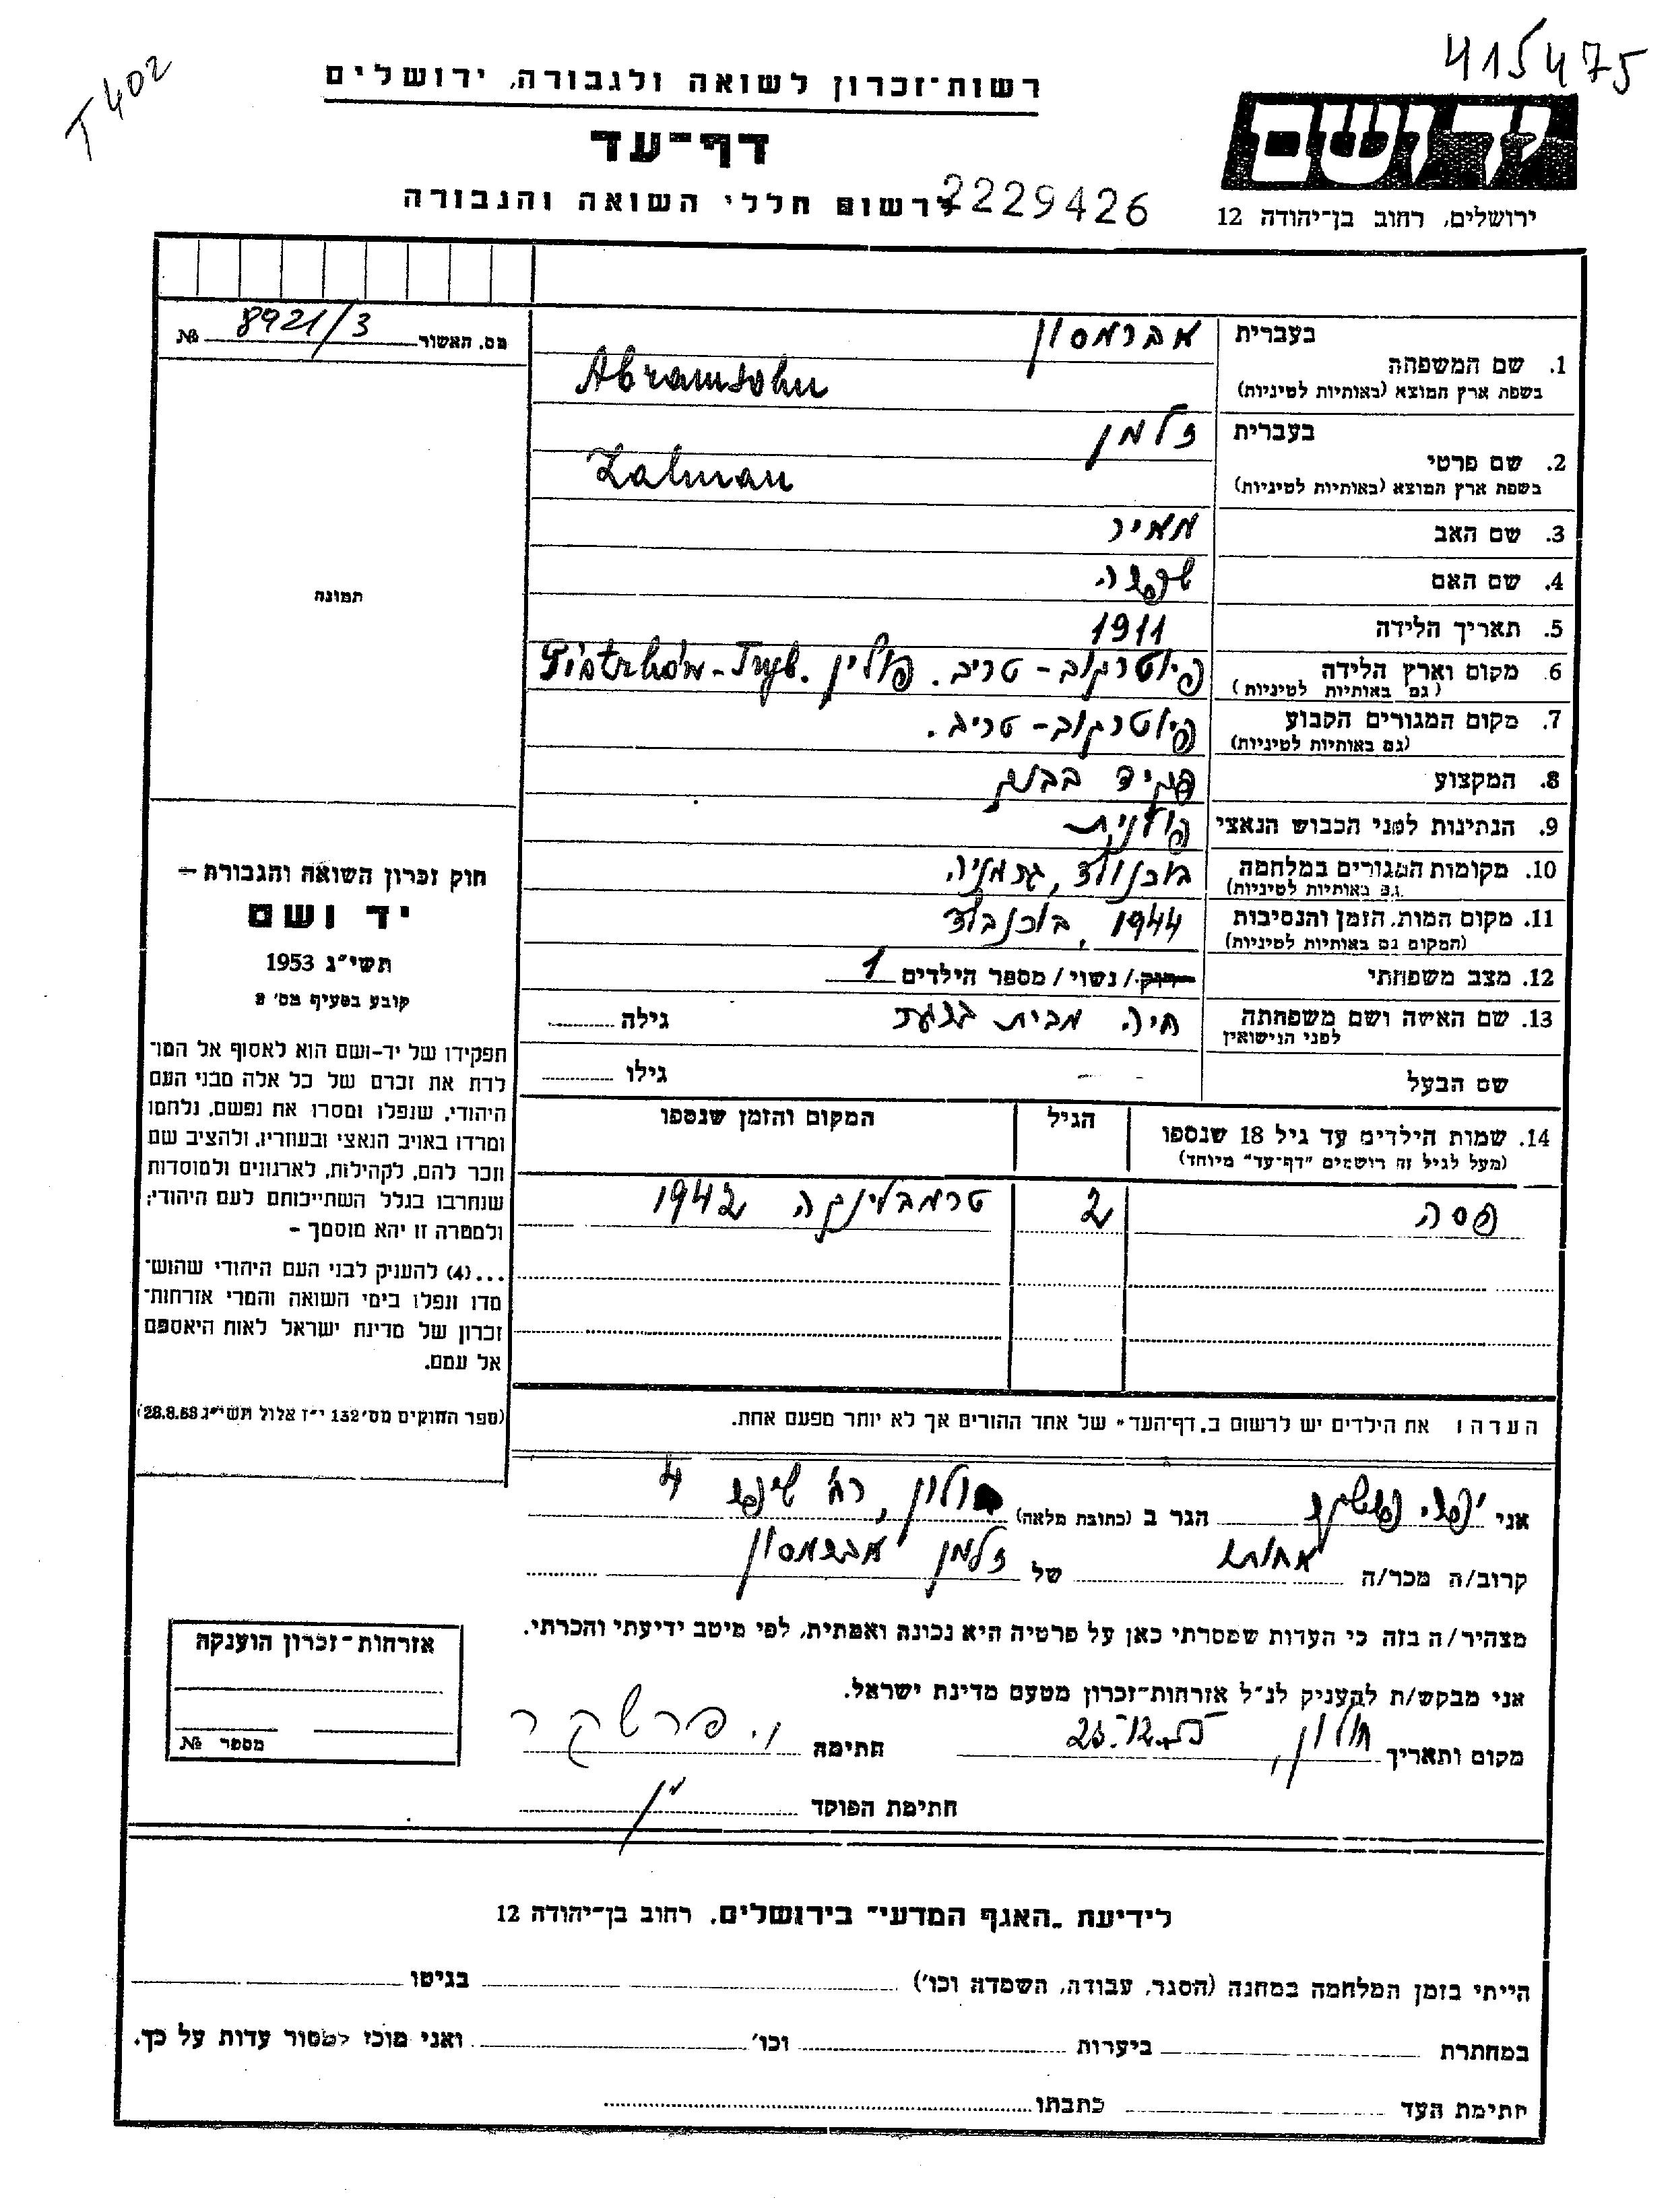 T 402
415475
רשות-זכרון לשואה ולגבורה, ירושלים
דף-עד
לרשום חללי השואה והגבורה
2229426
יד ושם
ירושלים, רחוב בן-יהודה 12
מס. האשור 8921/3 №
תמונה
בעברית אברמסון
1. שם המשפחה
בשפת ארץ המוצא (באותיות לטיניות) Abramsohn
בעברית זלמן
2. שם פרטי
בשפת ארץ המוצא (באותיות לטיניות) Zalman
3. שם האב מאיר
4. שם האם
5. תאריך הלידה 1911
6. מקום וארץ הלידה פיוטרקוב - טריב. פולין Piotrków-Tryb.
(גם באותיות לטיניות)
7. מקום המגורים הקבוע פיוטרקוב - טריב.
(גם באותיות לטיניות)
8. המקצוע פקיד בבנק
9. הנתינות לפני הכבוש הנאצי פולנית
10. מקומות המגורים במלחמה בוכנולד, גרמניה
(גם באותיות לטיניות)
11. מקום המות, הזמן והנסיבות 1944, בוכנבלד
(המקום גם באותיות לטיניות)
12. מצב משפחתי רווק / נשוי / מספר הילדים 1
13. שם האשה ושם משפחתה חיה מבית גילה
לפני הנישואין
שם הבעל - - גילו
14. שמות הילדים עד גיל 18 שנספו הגיל המקום והזמן שנספו
(מעל לגיל זה רושמים "דף-עד" מיוחד)
פסה 2 טרמבלינקה 1942
חוק זכרון השואה והגבורה —
יד ושם
תשי"ג 1953
קובע בסעיף מס' 2
תפקידו של יד-ושם הוא לאסוף אל המו-
לדת את זכרם של כל אלה מבני העם
היהודי, שנפלו ומסרו את נפשם, נלחמו
ומרדו באויב הנאצי ובעוזריו, ולהציב שם
וזכר להם, לקהילות, לארגונים ולמוסדות
שנחרבו בגלל השתייכותם לעם היהודי;
ולמטרה זו יהא מוסמך –
...(4) להעניק לבני העם היהודי שהוש-
מדו ונפלו בימי השואה והמרי אזרחות-
זכרון של מדינת ישראל לאות היאספם
אל עמם.
(ספר החוקים מס' 132 י"ז אלול תשי"ג 28.8.53)
הערה: את הילדים יש לרשום ב"דף-העד" של אחד ההורים אך לא יותר מפעם אחת.
אני הגר ב (כתובת מלאה) חולון, רח' 4
קרוב/ה מכר/ה אחותו של זלמן אברמסון
מצהיר/ה בזה כי העדות שמסרתי כאן על פרטיה היא נכונה ואמתית, לפי מיטב ידיעתי והכרתי.
אני מבקש/ת להעניק לנ"ל אזרחות-זכרון מטעם מדינת ישראל.
מקום ותאריך חולון, חתימה י. פרשקר
חתימת הפוקד
אזרחות-זכרון הוענקה
מספר №
לידיעת "האגף המדעי" בירושלים, רחוב בן-יהודה 12
הייתי בזמן המלחמה במחנה (הסגר, עבודה, השמדה וכו') בגיטו
במחתרת ביערות וכו' ואני מוכן למסור עדות על כך.
חתימת העד כתבתו